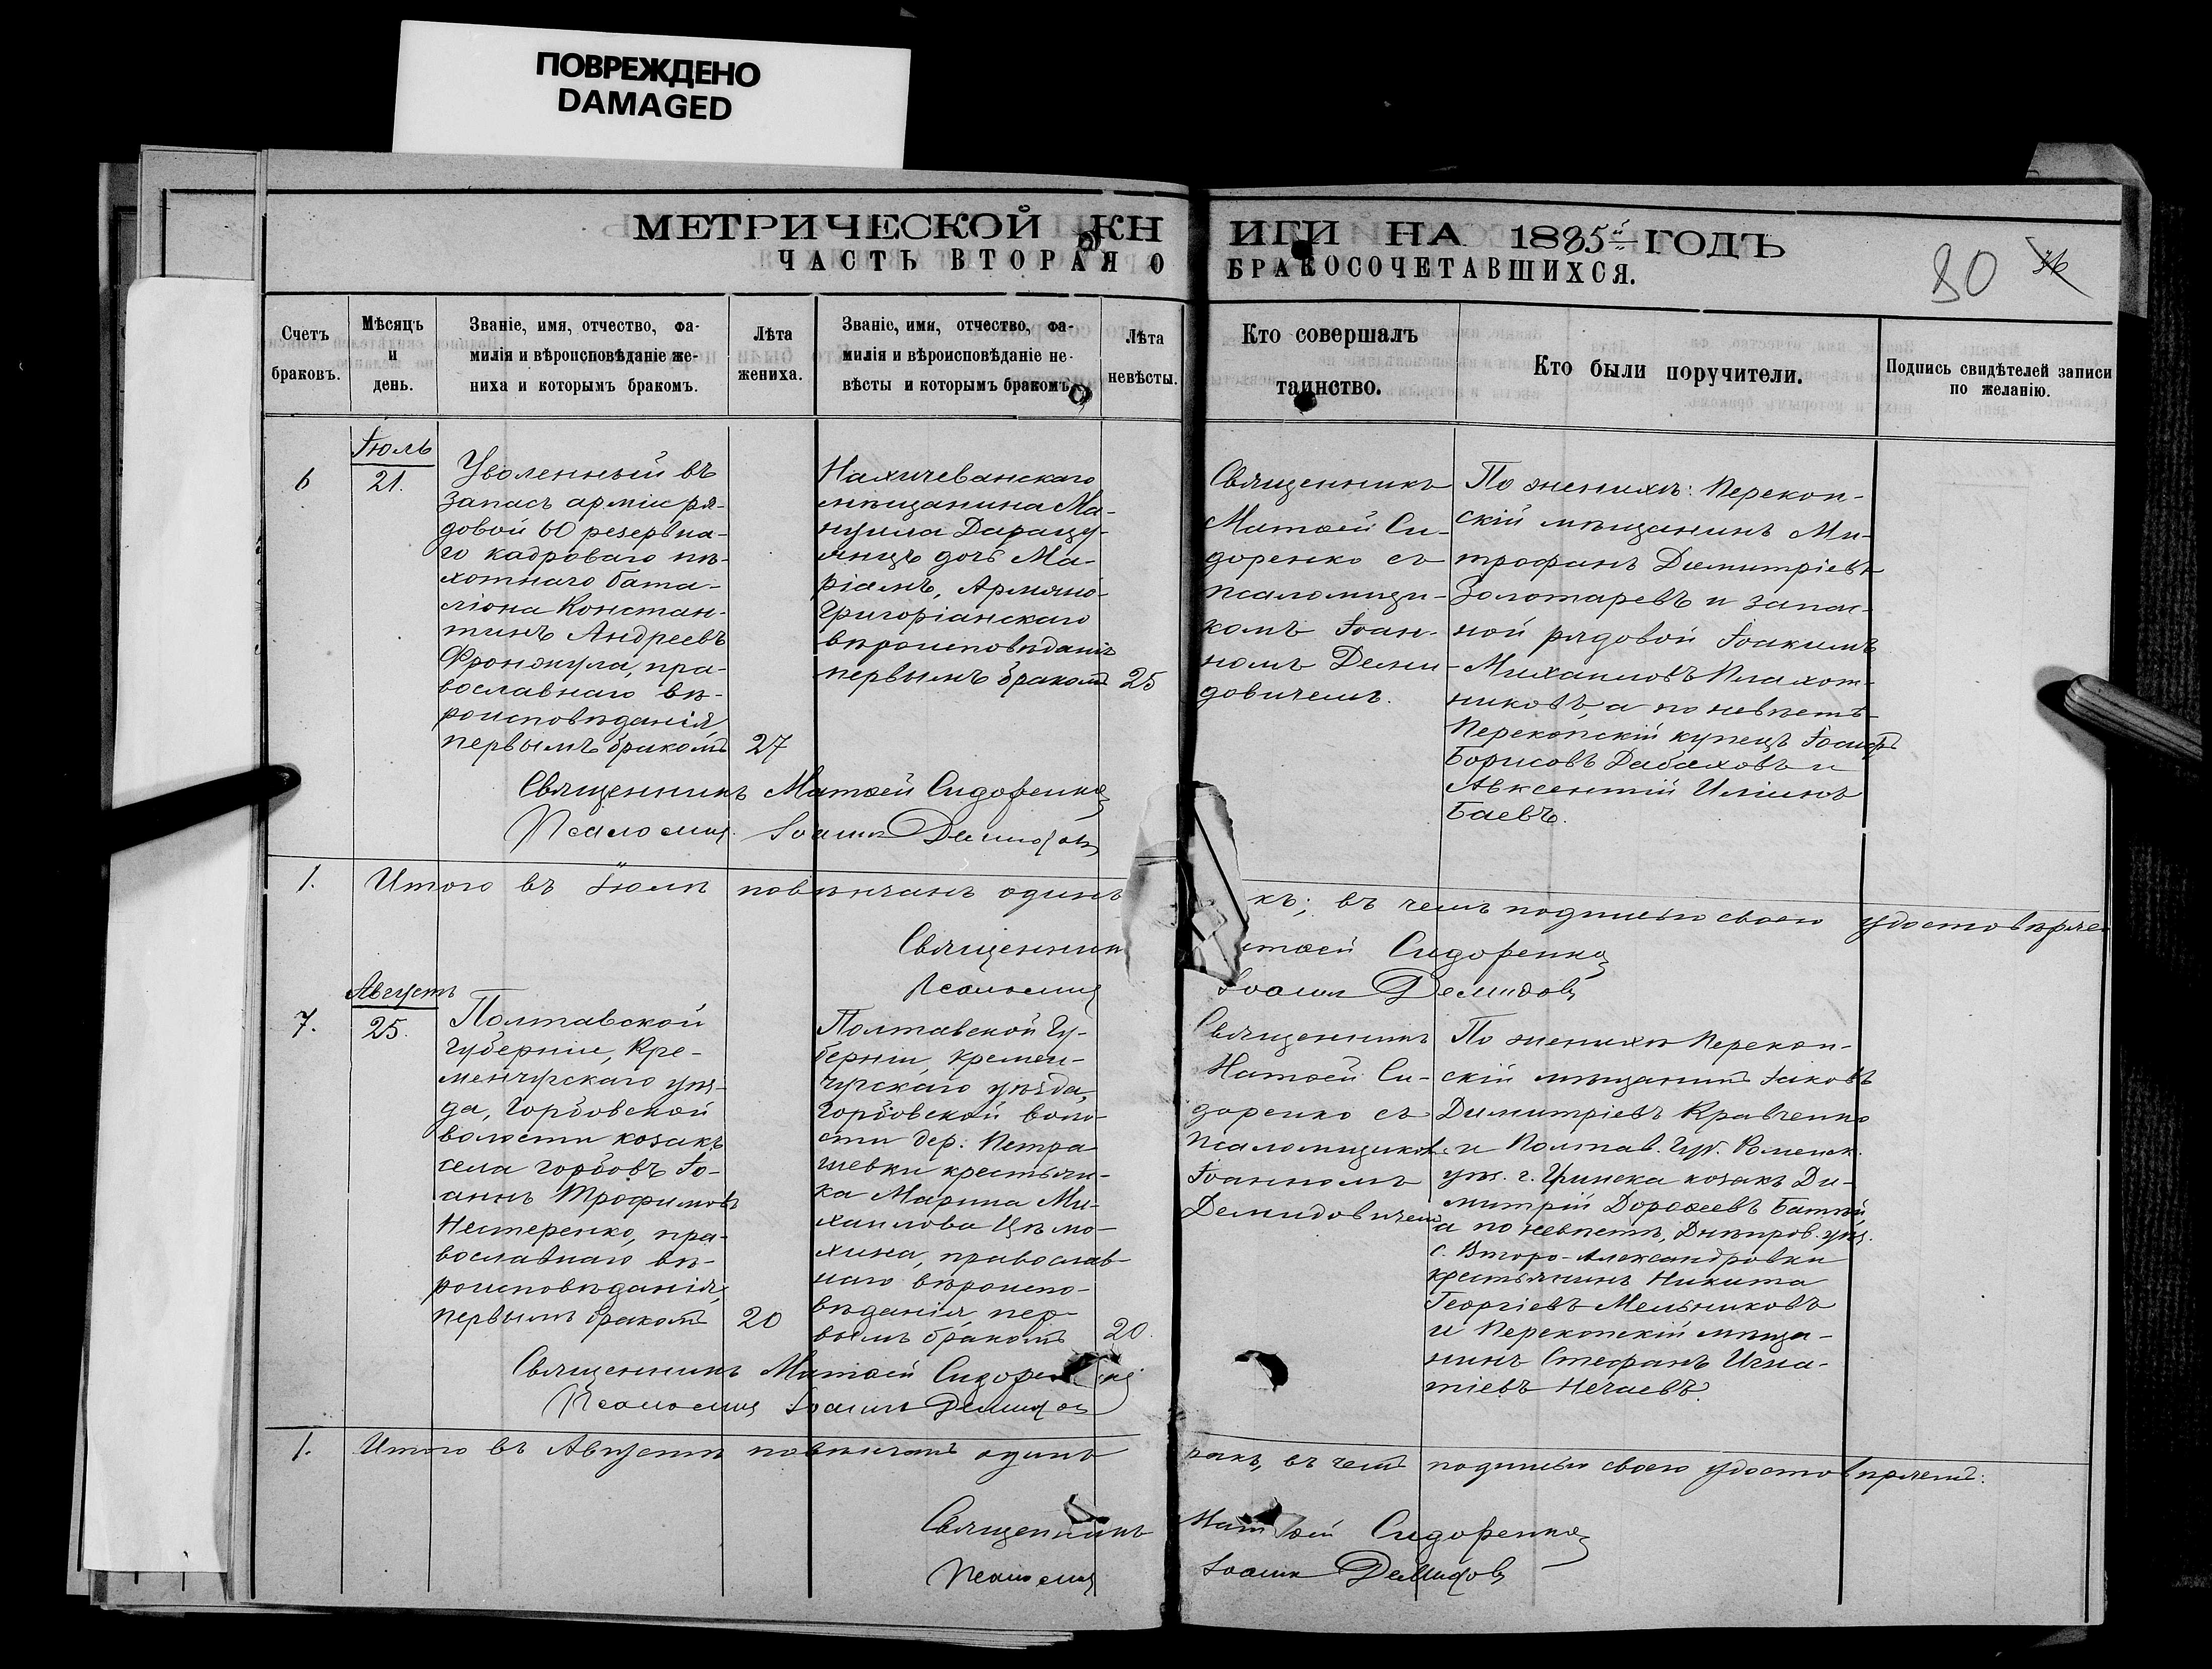 ПОВРЕЖДЕНО
DAMAGED
МЕТРИЧЕСКОЙ КНИГИ НА 1885й ГОДЪ
ЧАСТЬ ВТОРАЯ О БРАКОСОЧЕТАВШИХСЯ.
80
36
Счетъ
браковъ.
Мѣсяцъ
и
день.
Званіе, имя, отчество, фа-
милія и вѣроисповѣданіе же-
ниха и которымъ бракомъ.
Лѣта
жениха.
Званіе, имя, отчество, фа-
милія и вѣроисповѣданіе не-
вѣсты и которымъ бракомъ.
Лѣта
невѣсты.
Кто совершалъ
таинство.
Кто были поручители.
Подпись свидѣтелей записи
по желанію.
6
Іюль
21.
Уволенный въ
запасъ арміи ря-
довой 60 резервна-
го кадроваго пѣ-
хотнаго бата-
ліона Констан-
тинъ Андреевъ
Фронжула, пра-
вославнаго вѣ-
роисповѣданія,
первымъ бракомъ
27
Нахичеванскаго
мѣщанина Ма-
нуила
дочь Ма-
ріамъ, Армяно-
Григоріанскаго
вѣроисповѣданія
первымъ бракомъ
25
Священникъ
Матѳей Си-
доренко съ
псаломщи-
комъ Іоан-
номъ Деми-
довичемъ.
По женихѣ: Перекоп-
скій мѣщанинъ Ми-
трофанъ Димитріевъ
Золотаревъ и запас-
ной рядовой Іоакимъ
Михаиловъ Плахот-
никовъ, а по невѣстѣ
Перекопскій купецъ Іосифъ
Борисовъ Дабаховъ и
Авксентій Илiинъ
Баевъ.
Священникъ Матѳей Сидоренко
Псаломщ. Іоаннъ Демидов
1.
Итого въ Іюлѣ повѣнчанъ одинъ
къ; въ чемъ подписью своею удостовѣряемъ
Священник
тѳей Сидоренко
Псаломщ
Іоаннъ Демидов
7.
Августъ
25.
Полтавской
Губерніи, Кре-
менчугскаго уѣз-
да, Горбовской
волости козакъ
села Горбовъ Іо-
аннъ Трофимовъ
Нестеренко, пра-
вославнаго вѣ-
роисповѣданія,
первымъ бракомъ
20
Полтавской Гу-
берніи, Кремен-
чугскаго уѣзда,
Горбовской воло-
сти дер: Петра
шевки крестьян-
ка Марина Ми-
хаилова Цѣмо-
хина, православ-
наго вѣроиспо-
вѣданія, пер-
вымъ бракомъ
20.
Священникъ
Матѳей Си-
доренко съ
Псаломщиком
Іоанномъ
Демидовичемъ
По женихѣ Перекоп-
скій мѣщанинъ Іаковъ
Димитріевъ Кравченко
и Полтав. Губ. Роменск.
уѣз. г. Глинска козакъ Ди-
митрій Дороѳеевъ Батый,
а по невѣстѣ, Днѣпров. уѣз.
с. Второ-Александровки
крестьянинъ Никита
Георгіевъ Мельниковъ
и Перекопскій мѣща-
нинъ Стефанъ Игна-
тіевъ Нечаевъ.
Священникъ Матѳей Сидоренко
Псаломщ Іоаннъ Демидов
1.
Итого въ Августѣ повѣнчанъ одинъ
ракъ, въ чемъ подписью своею удостовѣряемъ:
Священникъ Матѳей Сидоренко
Псаломщ Іоаннъ Демидов